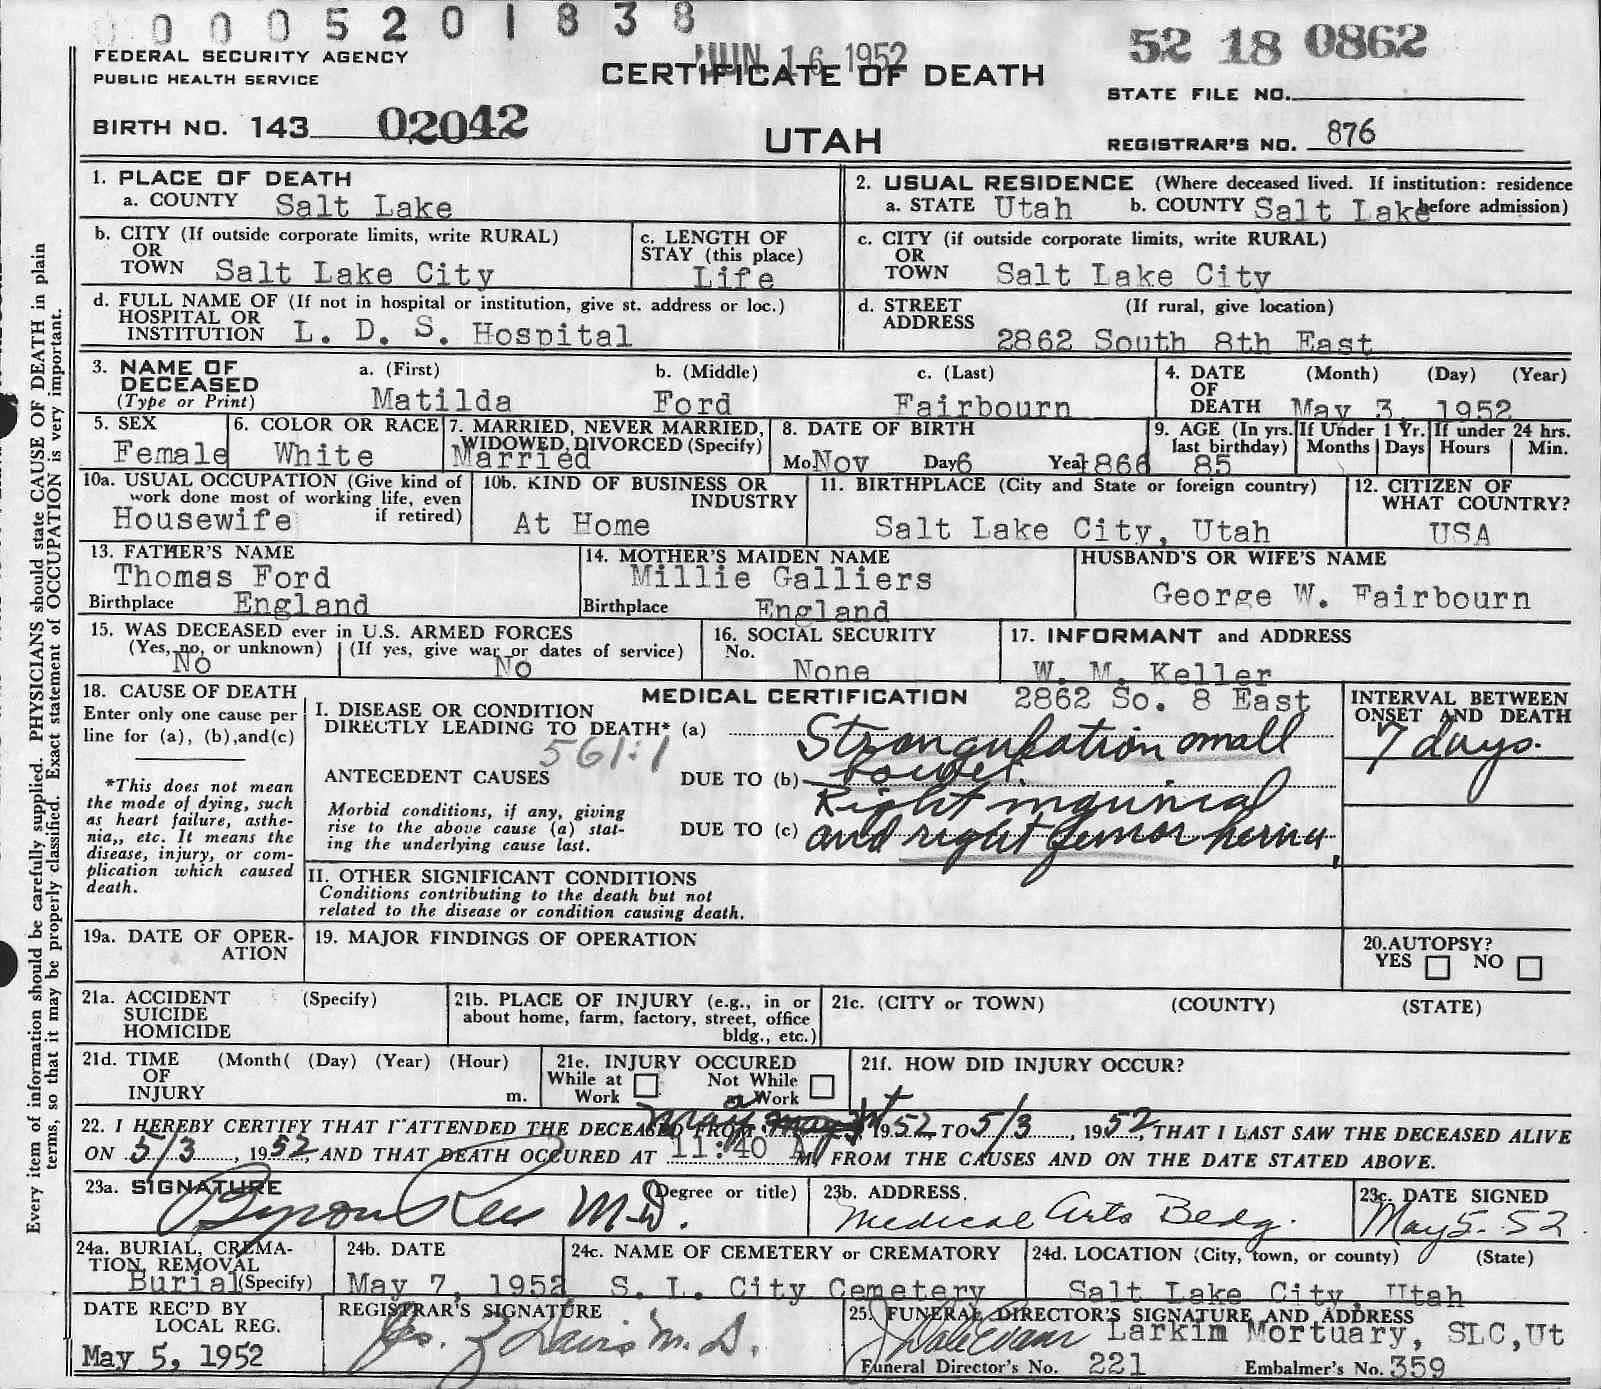 0 0 0 5 2 0 1 8 3 8
JUN 16 1952
52 18 0862
FEDERAL SECURITY AGENCY
PUBLIC HEALTH SERVICE
CERTIFICATE OF DEATH
STATE FILE NO.
BIRTH NO. 143 02042
UTAH
REGISTRAR'S NO. 876
Every item of information should be carefully supplied. PHYSICIANS should state CAUSE OF DEATH in plain
terms, so that it may be properly classified. Exact statement of OCCUPATION is very important.
1. PLACE OF DEATH
a. COUNTY Salt Lake
2. USUAL RESIDENCE (Where deceased lived. If institution: residence
a. STATE Utah b. COUNTY Salt Lake before admission)
b. CITY (If outside corporate limits, write RURAL)
OR
TOWN Salt Lake City
c. LENGTH OF
STAY (this place)
Life
c. CITY (if outside corporate limits, write RURAL)
OR
TOWN Salt Lake City
d. FULL NAME OF (If not in hospital or institution, give st. address or loc.)
HOSPITAL OR
INSTITUTION L. D. S. Hospital
d. STREET (If rural, give location)
ADDRESS
2862 South 8th East
3. NAME OF a. (First) b. (Middle) c. (Last)
DECEASED
(Type or Print) Matilda Ford Fairbourn
4. DATE (Month) (Day) (Year)
OF
DEATH May 3, 1952
5. SEX
Female
6. COLOR OR RACE
White
7. MARRIED, NEVER MARRIED,
WIDOWED, DIVORCED (Specify)
Married
8. DATE OF BIRTH
Mo Nov Day 6 Year 1866
9. AGE (In yrs.
last birthday)
85
If Under 1 Yr.
Months Days
If under 24 hrs.
Hours Min.
10a. USUAL OCCUPATION (Give kind of
work done most of working life, even
if retired)
Housewife
10b. KIND OF BUSINESS OR
INDUSTRY
At Home
11. BIRTHPLACE (City and State or foreign country)
Salt Lake City, Utah
12. CITIZEN OF
WHAT COUNTRY?
USA
13. FATHER'S NAME
Thomas Ford
Birthplace England
14. MOTHER'S MAIDEN NAME
Millie Galliers
Birthplace England
HUSBAND'S OR WIFE'S NAME
George W. Fairbourn
15. WAS DECEASED ever in U.S. ARMED FORCES
(Yes, no, or unknown) (If yes, give war or dates of service)
No No
16. SOCIAL SECURITY
No.
None
17. INFORMANT and ADDRESS
W. M. Keller
2862 So. 8 East
18. CAUSE OF DEATH
Enter only one cause per
line for (a), (b), and (c)
*This does not mean
the mode of dying, such
as heart failure, asthe-
nia,, etc. It means the
disease, injury, or com-
plication which caused
death.
MEDICAL CERTIFICATION
I. DISEASE OR CONDITION
DIRECTLY LEADING TO DEATH* (a) Strangulation small
561:1
ANTECEDENT CAUSES DUE TO (b) bowel.
Morbid conditions, if any, giving
rise to the above cause (a) stat-
ing the underlying cause last.
Right inguinal
DUE TO (c) and right femor hernia
INTERVAL BETWEEN
ONSET AND DEATH
7 days.
II. OTHER SIGNIFICANT CONDITIONS
Conditions contributing to the death but not
related to the disease or condition causing death.
19a. DATE OF OPER-
ATION
19. MAJOR FINDINGS OF OPERATION
20. AUTOPSY?
YES NO
21a. ACCIDENT (Specify)
SUICIDE
HOMICIDE
21b. PLACE OF INJURY (e.g., in or
about home, farm, factory, street, office
bldg., etc.)
21c. (CITY or TOWN) (COUNTY) (STATE)
21d. TIME (Month( (Day) (Year) (Hour)
OF
INJURY m.
21e. INJURY OCCURED
While at Not While
Work at Work
21f. HOW DID INJURY OCCUR?
22. I HEREBY CERTIFY THAT I ATTENDED THE DECEASED FROM 1952 TO 5/3, 1952, THAT I LAST SAW THE DECEASED ALIVE
ON 5/3, 1952, AND THAT DEATH OCCURED AT 11:40 A M FROM THE CAUSES AND ON THE DATE STATED ABOVE.
23a. SIGNATURE (Degree or title)
Byron Rees M.D.
23b. ADDRESS.
Medical Arts Bldg.
23c. DATE SIGNED
May 5-52
24a. BURIAL, CREMA-
TION, REMOVAL
Burial (Specify)
24b. DATE
May 7, 1952
24c. NAME OF CEMETERY or CREMATORY
S. L. City Cemetery
24d. LOCATION (City, town, or county) (State)
Salt Lake City, Utah
DATE REC'D BY
LOCAL REG.
May 5, 1952
REGISTRAR'S SIGNATURE
25. FUNERAL DIRECTOR'S SIGNATURE AND ADDRESS
J Dale Evans Larkim Mortuary, SLC, Ut
Funeral Director's No. 221 Embalmer's No. 359